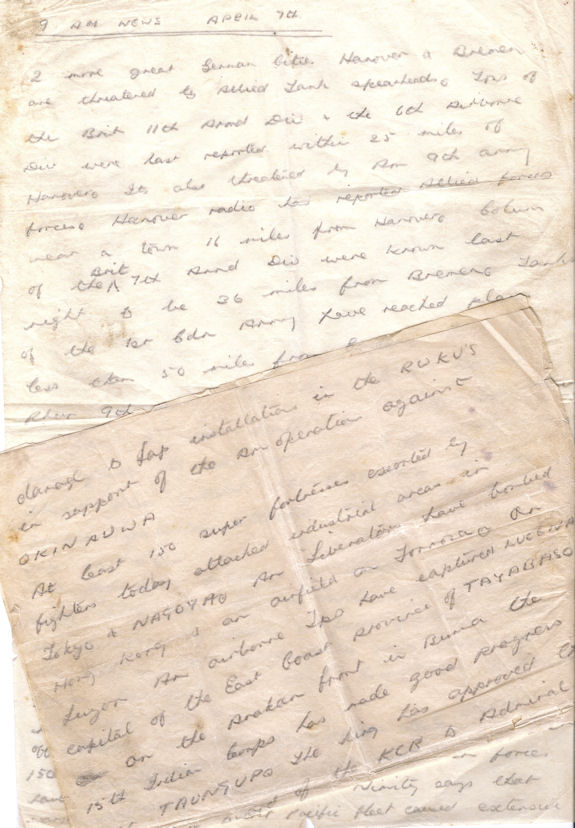 9 AM NEWS APRIL 7th
2 more great German Cities Hanover & Bremen
are threatened by Allied Tank spearheads. Tps of
the Brit 11th Armd Div & the 6th Airborne
Div were last reported within 25 miles of
Hanover. Its also threatened by Am 9th army
forces. Hanover radio has reported Allied forces
near a town 16 miles from Hanover. Column
of the Brit 7th Armd Div were known last
night to be 36 miles from Bremen. Tanks
of the 1st Cdn Army have reached
less than 50 miles from
9th
damage to Jap installations in the RUKU'S
in support of the Am operation against
OKINAUWA
At least 150 super fortresses escorted by
fighters today attacked industrial areas in
Tokyo & NAGOYA. Am Liberators have bombed
Hong Kong & an airfield on Formoza. On
Luzon Am airborne Tps have captured
capital of the East Coast province of TAYABASO
on the Arakan front in Burma the
15th Indian Corps has made good progress
TAUNGUPO The King has approved the
of the KCB to Admiral
150
says that
Pacific fleet caused extensive